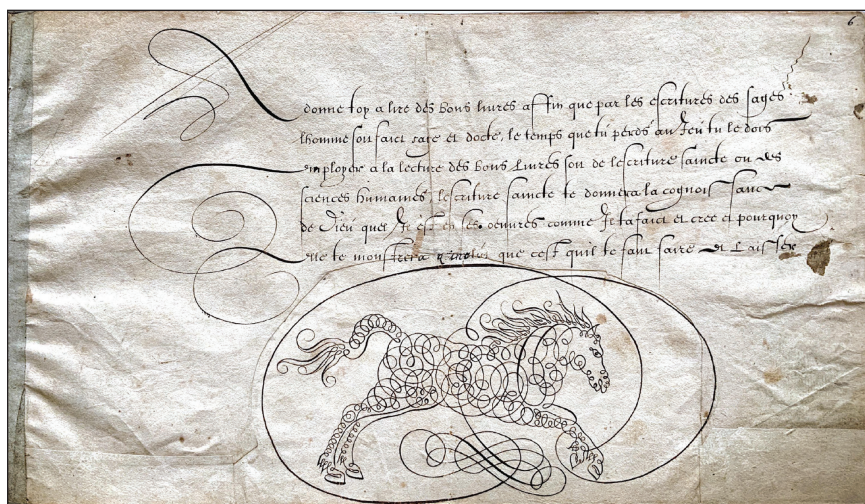 6
Adonne toy a lire des bons liures affin que par les escritures des sages
lhomme soit faict sage et docte, le temps que tu perds au Jeu tu le dois
employer a la lecture des bons liures soit de lescriture saincte ou des
sciences humaines, lescriture saincte te donnera la cognoissance
de Dieu quel Il est en ses oeuures comme Il ta faict et cree et pourquoy
elle te monstrera que cest quil te faut faire et laisser